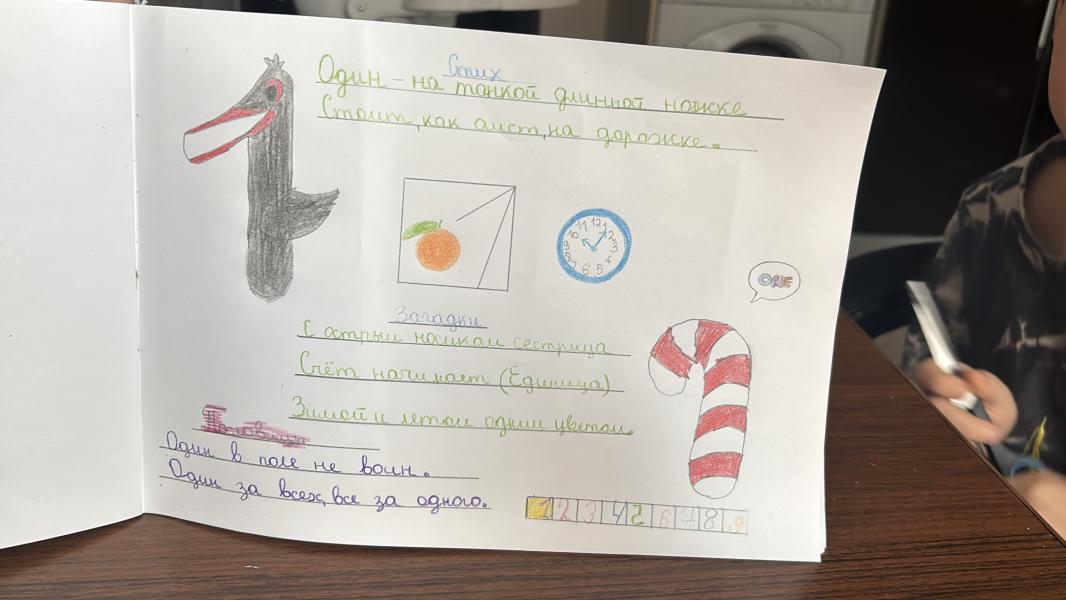 Стих
Один - на тонкой длинной ножке
Стоит, как аист, на дорожке.
11 12 1
10 2
9 3
8 4
7 6 5
ONE
Загадки
С острым носиком сестрица
Счёт начинает (Единица)
Зимой и летом одним цветом.
Один в поле не воин.
Один за всех, все за одного.
1 2 3 4 5 6 7 8 9